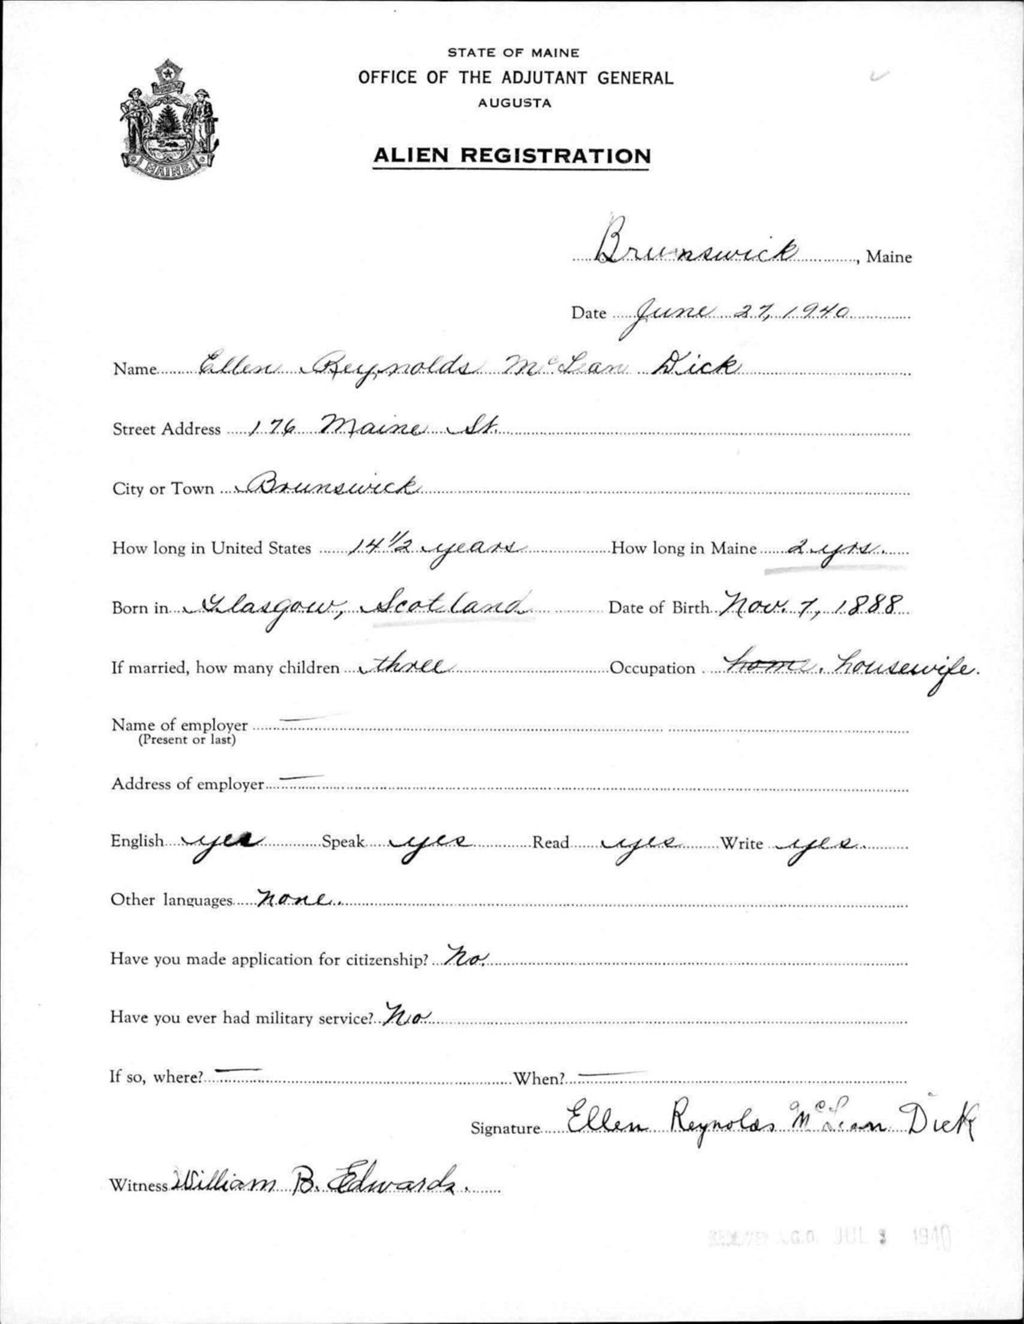 STATE OF MAINE
OFFICE OF THE ADJUTANT GENERAL
AUGUSTA
ALIEN REGISTRATION
MAINE
Brunswick, Maine
Date June 27, 1940
Name Ellen Reynolds McLean Dick
Street Address 176 Maine St.
City or Town Brunswick
How long in United States 14 1/2 years How long in Maine 2 yrs.
Born in Glasgow, Scotland Date of Birth Nov. 7, 1888
If married, how many children three Occupation home. housewife.
Name of employer —
(Present or last)
Address of employer —
English yes Speak yes Read yes Write yes.
Other languages none.
Have you made application for citizenship? No.
Have you ever had military service? No
If so, where? — When? —
Signature Ellen Reynolds McLean Dick
Witness William B. Edwards.
A.G.O. JUL 1940